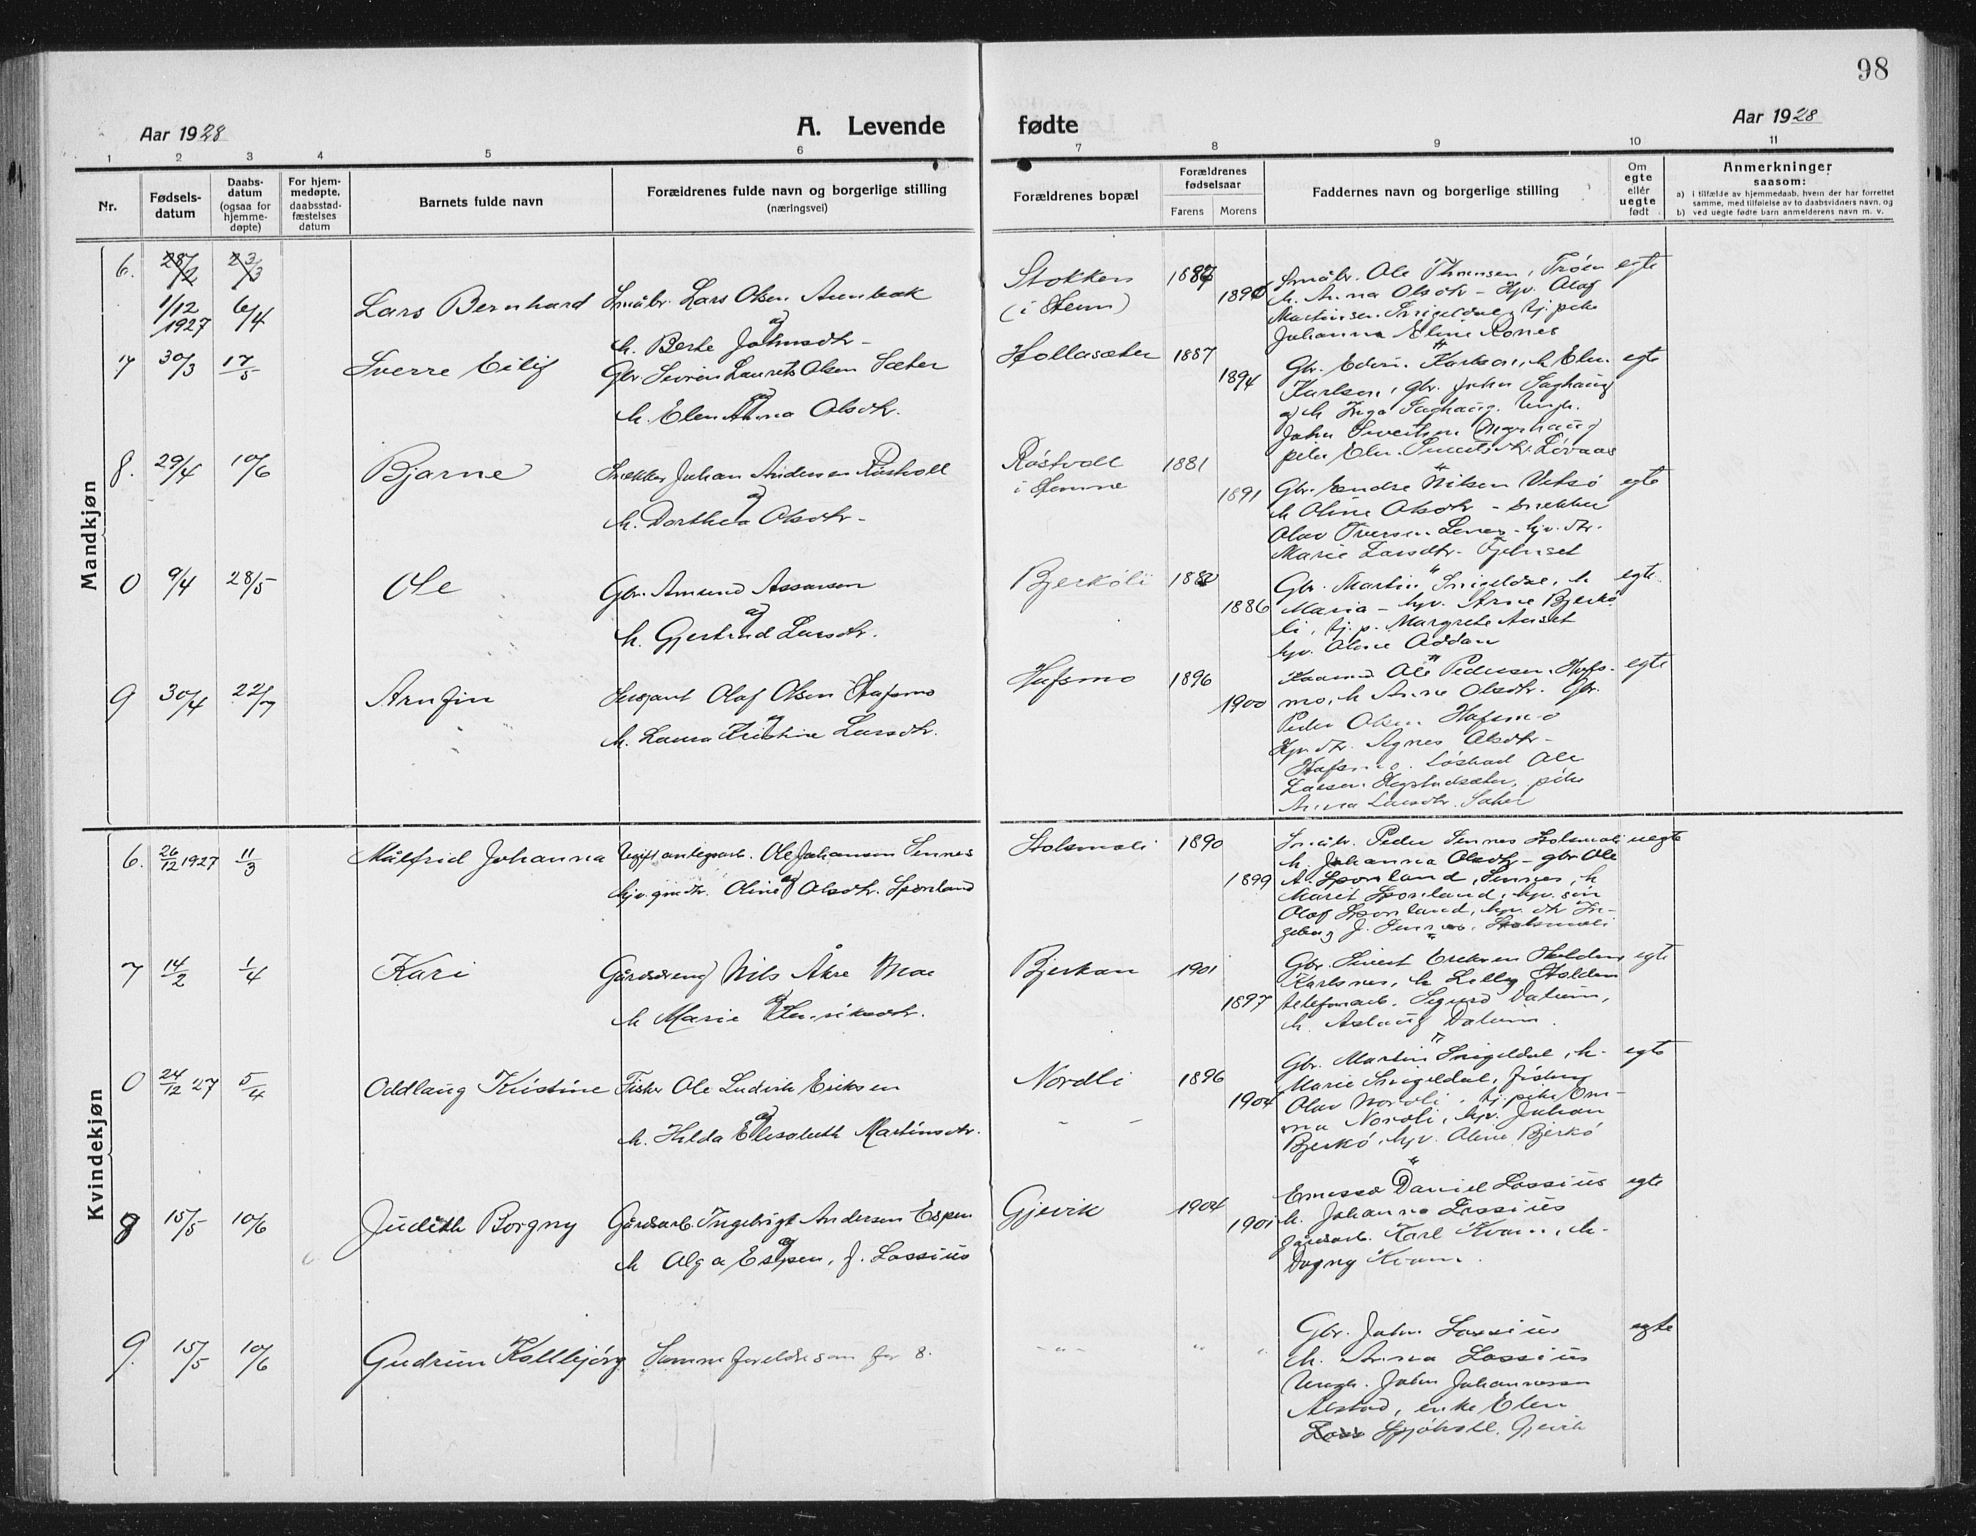 98
Aar 1928
A. Levende fødte
Aar 1928
1 2 3 4 5 6 7 8 9 10 11
Nr.
Fødsels-
datum
Daabs-
datum
(ogsaa for
hjemme-
døpte)
For hjem-
medøpte,
daabsstad-
fæstelses
datum
Barnets fulde navn
Forældrenes fulde navn og borgerlige stilling
(næringsvei)
Forældrenes bopæl
Forældrenes
fødselsaar
Farens Morens
Faddernes navn og borgerlige stilling
Om
egte
eller
uegte
født
Anmerkninger
saasom:
a) i tilfælde av hjemmedaab, hvem der har forrettet
samme, med tilføielse av to daabsvidners navn, og
b) ved uegte fødte barn anmelderens navn m. v.
Mandkjøn
6. 28/2 23/3
1/12 1927 6/4 Lars Bernhard Småbr. Lars Olsen
og
h. Berte Johnsdtr.
Stokken
(i Hemn)
1887
Småbr. Ole Thomsen, Trøen
h. Anna Olsdtr - Gbr. Olaf
tj. pike
Johanna Eline Rones
egte
7 30/3 17/5 Sverre Eilif Gbr Sivren Laurits Olsen Sæter
og
h. Elen Anna Olsdtr.
Hollasæter 1887
1894
Gbr. Edvin Karlsen, h Elen
Karlsen, gbr. John Saghaug
og h Inga Saghaug. Ungk.
John Sivertsen
pike Elen Løvaas
egte
8. 29/4 10/6 Bjarne Snekker Johan Andersen Røstvoll
og
h. Dorthea Olsdtr.
Røstvoll
i Hemne
1881
1891
Gbr. Endre Nilsen Vetsø
h Oline Olsdtr - snekker
Olav Iversen
Marie Larsdtr.
egte
0 9/4 28/5 Ole Gbr. Amund Assersen
og
h. Gjertrud Larsdtr.
Bjerkøli
1886
Gbr. Martin Snigeldal, h
Maria - hjv. Arne Bjerkø-
li, tj. p. Margrete Auset
hjv. Oline Oddan
egte
9 30/4 22/7 Arnfin Sersjant Olaf Olsen Hafsmo
og
h. Laura Kristine Larsdtr.
Hafsmo 1896
1900
Kaarmd Ole Pedersen Hafs-
mo, h Anne Olsdtr. Gbr.
Peder Olsen Hafsmo
Hjv. dtr. Agnes Olsdtr -
Hafsmo. Løskad Ole
Larsen pike
Anna Larsdtr.
egte
Kvindekjøn
6. 26/12 1927 11/3 Målfrid Johanna Ugift anlegsarb. Ole Johansen Sennes
og
hjv. gmdtr. Oline Olsdtr. Sponland
Holsmoli 1890
1899
Småbr. Peder Sennes Holsmoli
h. Johanna Olsdtr - gbr Ole
A. Sponland, Sennes, h
Marit Sponland, hjv. søn
Olaf Sponland, hjv. dtr In-
geborg J. Sennes, Holsmoli
uegte
7 14/2 1/4 Kari Gårdsdreng Nils Åkre Moe
og
h Marie Henriksdtr.
Bjerkan 1901
1897
Gbr. Sivert Eriksen Holden
Karlsnes, h Lilly Holden
telefonarb. Sigurd Dalum,
h. Aslaug Dalum.
egte
0 24/12 27 5/4 Oddlaug Kristine Fisker Ole Ludvik Eriksen
og
h. Hilda Elisabeth Martinsdtr.
Nordli 1896
- - 1904
Gbr. Martin Snigeldal, h.
Marie Snigeldal, fisker
Olav Nordli, tj. pike Em-
ma Nordli, hjv. Johan
Bjerkø, hjv. Oline Bjerkø
egte
8 15/5 10/6 Judith Borgny Gårdsarb. Ingebrigt Andersen Espen
og
h Olga Espen, f. Lossius
Gjevik 1904
1901
Daniel Lossius
h. Johanna Lossius
gårdsarb. Karl Kvam, h.
Dagny Kvam.
egte
9. 15/5 10/6 Gudrun Kollbjørg Samme foreldre som for 8.
-"- " "
Gbr. John Lossius
h. Anna Lossius
Ungk. John Johannesen
Alstad, enke Elen
Gjevik
egte